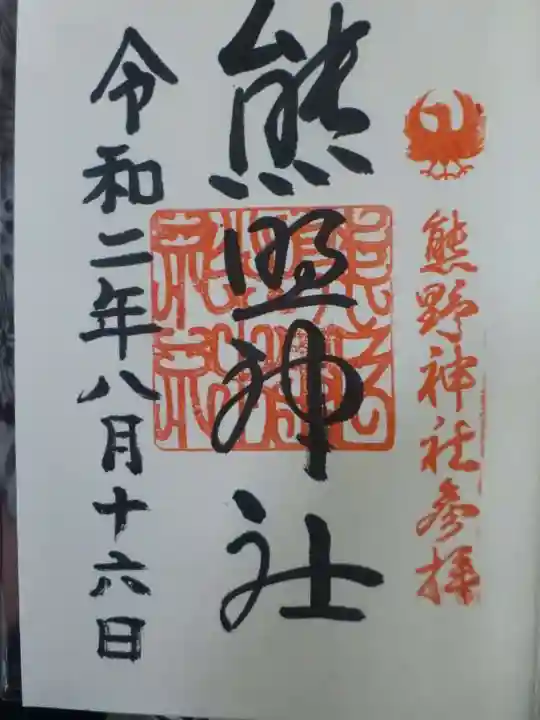 熊野神社参拝
熊野神社
令和二年八月十六日